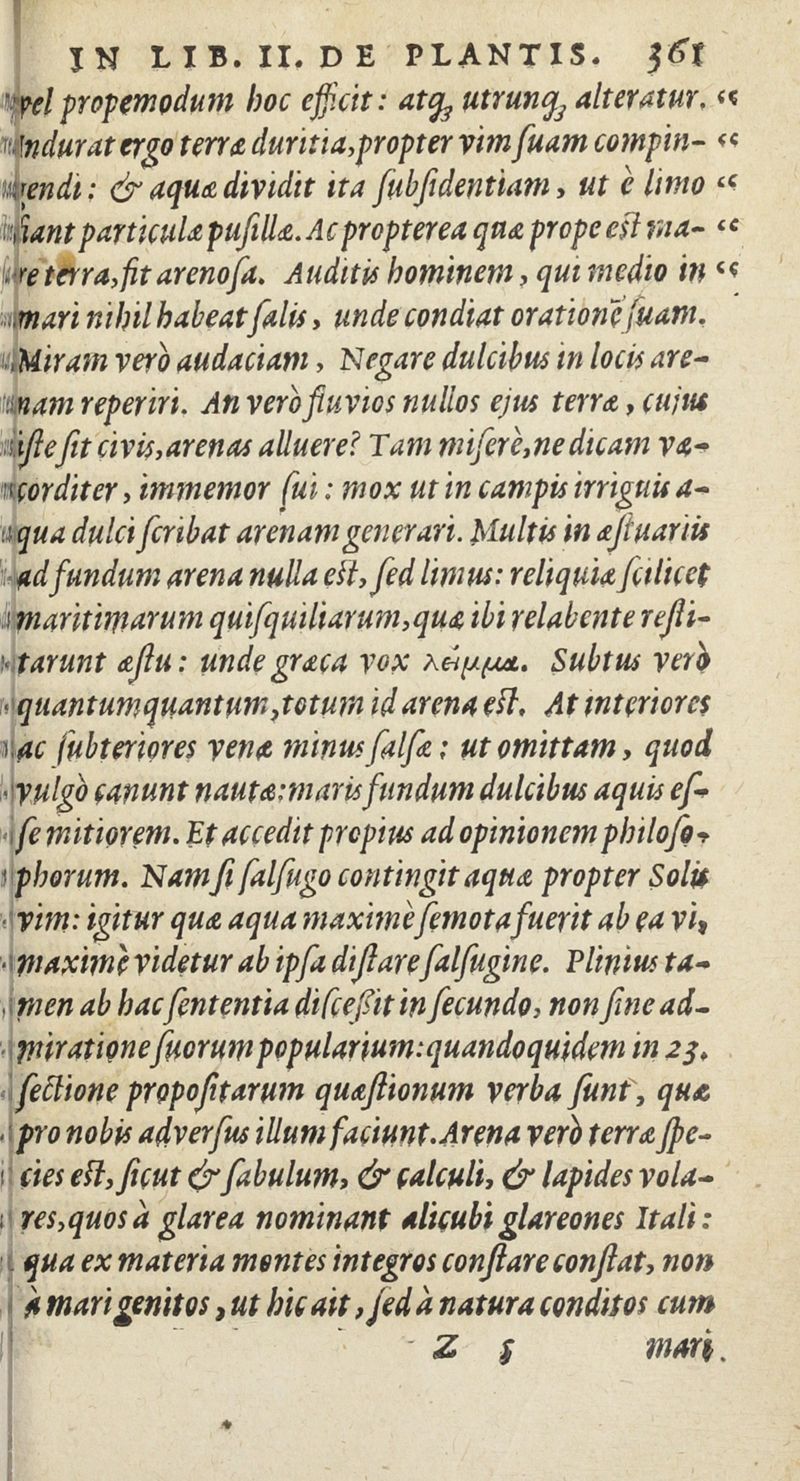 IN LIB. II. DE PLANTIS. 361
vel propemodum hoc efficit: atq; utrunq; alteratur. “
Indurat ergo terræ duritia, propter vim ſuam compin- “
gendi: & aquæ dividit ita ſubſidentiam, ut è limo “
fiant particulæ puſillæ. Ac propterea quæ prope eſt ma- “
re terra, fit arenoſa. Auditis hominem, qui medio in “
mari nihil habeat ſalis, unde condiat orationẽ ſuam.
Miram verò audaciam, Negare dulcibus in locis are-
nam reperiri. An verò fluvios nullos ejus terræ, cujus
iſte ſit civis, arenas alluere? Tam miſerè, ne dicam væ-
corditer, immemor ſui: mox ut in campis irriguis a-
qua dulci ſcribat arenam generari. Multis in æſtuariis
ad fundum arena nulla eſt, ſed limus: reliquiæ ſcilicet
maritimarum quiſquiliarum, quæ ibi relabente reſti-
tarunt æſtu: unde græca vox λεῖμμα. Subtus verò
quantumquantum, totum id arena eſt. At interiores
ac ſubteriores venæ minus ſalſæ: ut omittam, quod
vulgò canunt nautæ: maris fundum dulcibus aquis eſ-
ſe mitiorem. Et accedit propius ad opinionem philoſo-
phorum. Nam ſi ſalſugo contingit aquæ propter Solis
vim: igitur quæ aqua maximè ſemota fuerit ab ea vi,
maximè videtur ab ipſa diſtare ſalſugine. Plinius ta-
men ab hac ſententia diſceſſit in ſecundo, non ſine ad-
miratione ſuorum popularium: quandoquidem in 23.
ſectione propoſitarum quæſtionum verba ſunt, quæ
pro nobis adverſus illum faciunt. Arena verò terræ ſpe-
cies eſt, ſicut & ſabulum, & calculi, & lapides vola-
res, quos à glarea nominant alicubi glareones Itali:
qua ex materia montes integros conſtare conſtat, non
à mari genitos, ut hic ait, ſed à natura conditos cum
Z 5 mari.